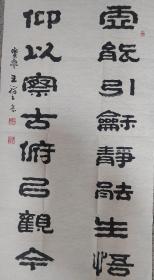 虛能引龢靜能生悟
仰以察古俯㠯觀今